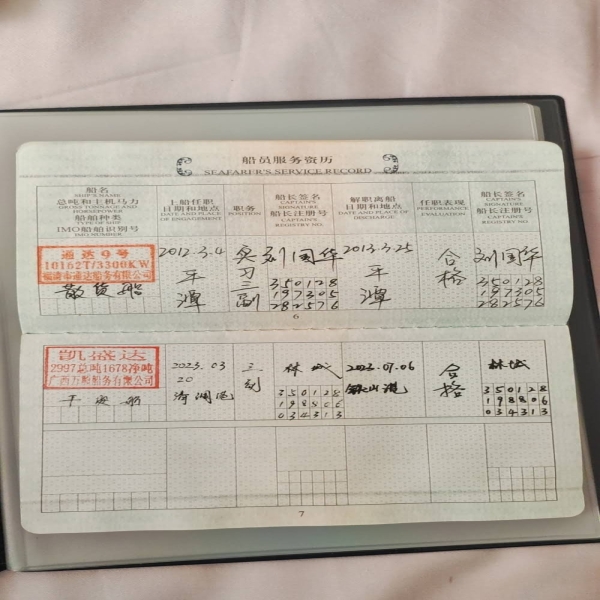 船员服务资历
SEAFARER'S SERVICE RECORD
船名
SHIP'S NAME
总吨和主机马力
GROSS TONNAGE AND
HORSEPOWER
船舶种类
TYPE OF SHIP
IMO船舶识别号
IMO NUMBER
上船任职
日期和地点
DATE AND PLACE
OF ENGAGEMENT
职务
POSITION
船长签名
CAPTAIN'S
SIGNATURE
船长注册号
REGISTRY NO.
解职离船
日期和地点
DATE AND PLACE OF
DISCHARGE
任职表现
PERFORMANCE
EVALUATION
船长签名
CAPTAIN'S
SIGNATURE
船长注册号
CAPTAIN'S
REGISTRY NO.
通达9号
10162T/3300KW
船务有限公司
散货船
2012.3.4
平潭
实习三副
刘国华
350128
197305
282576
2013.3.25
平潭
合格
刘国华
350128
197305
282576
6
凯盛达
2997总吨1678净吨
广西万 船务有限公司
干 船
2023.03
20
三副
林
350128
198806
034313
2023.07.06
山港
合格
林
350128
198806
034313
7